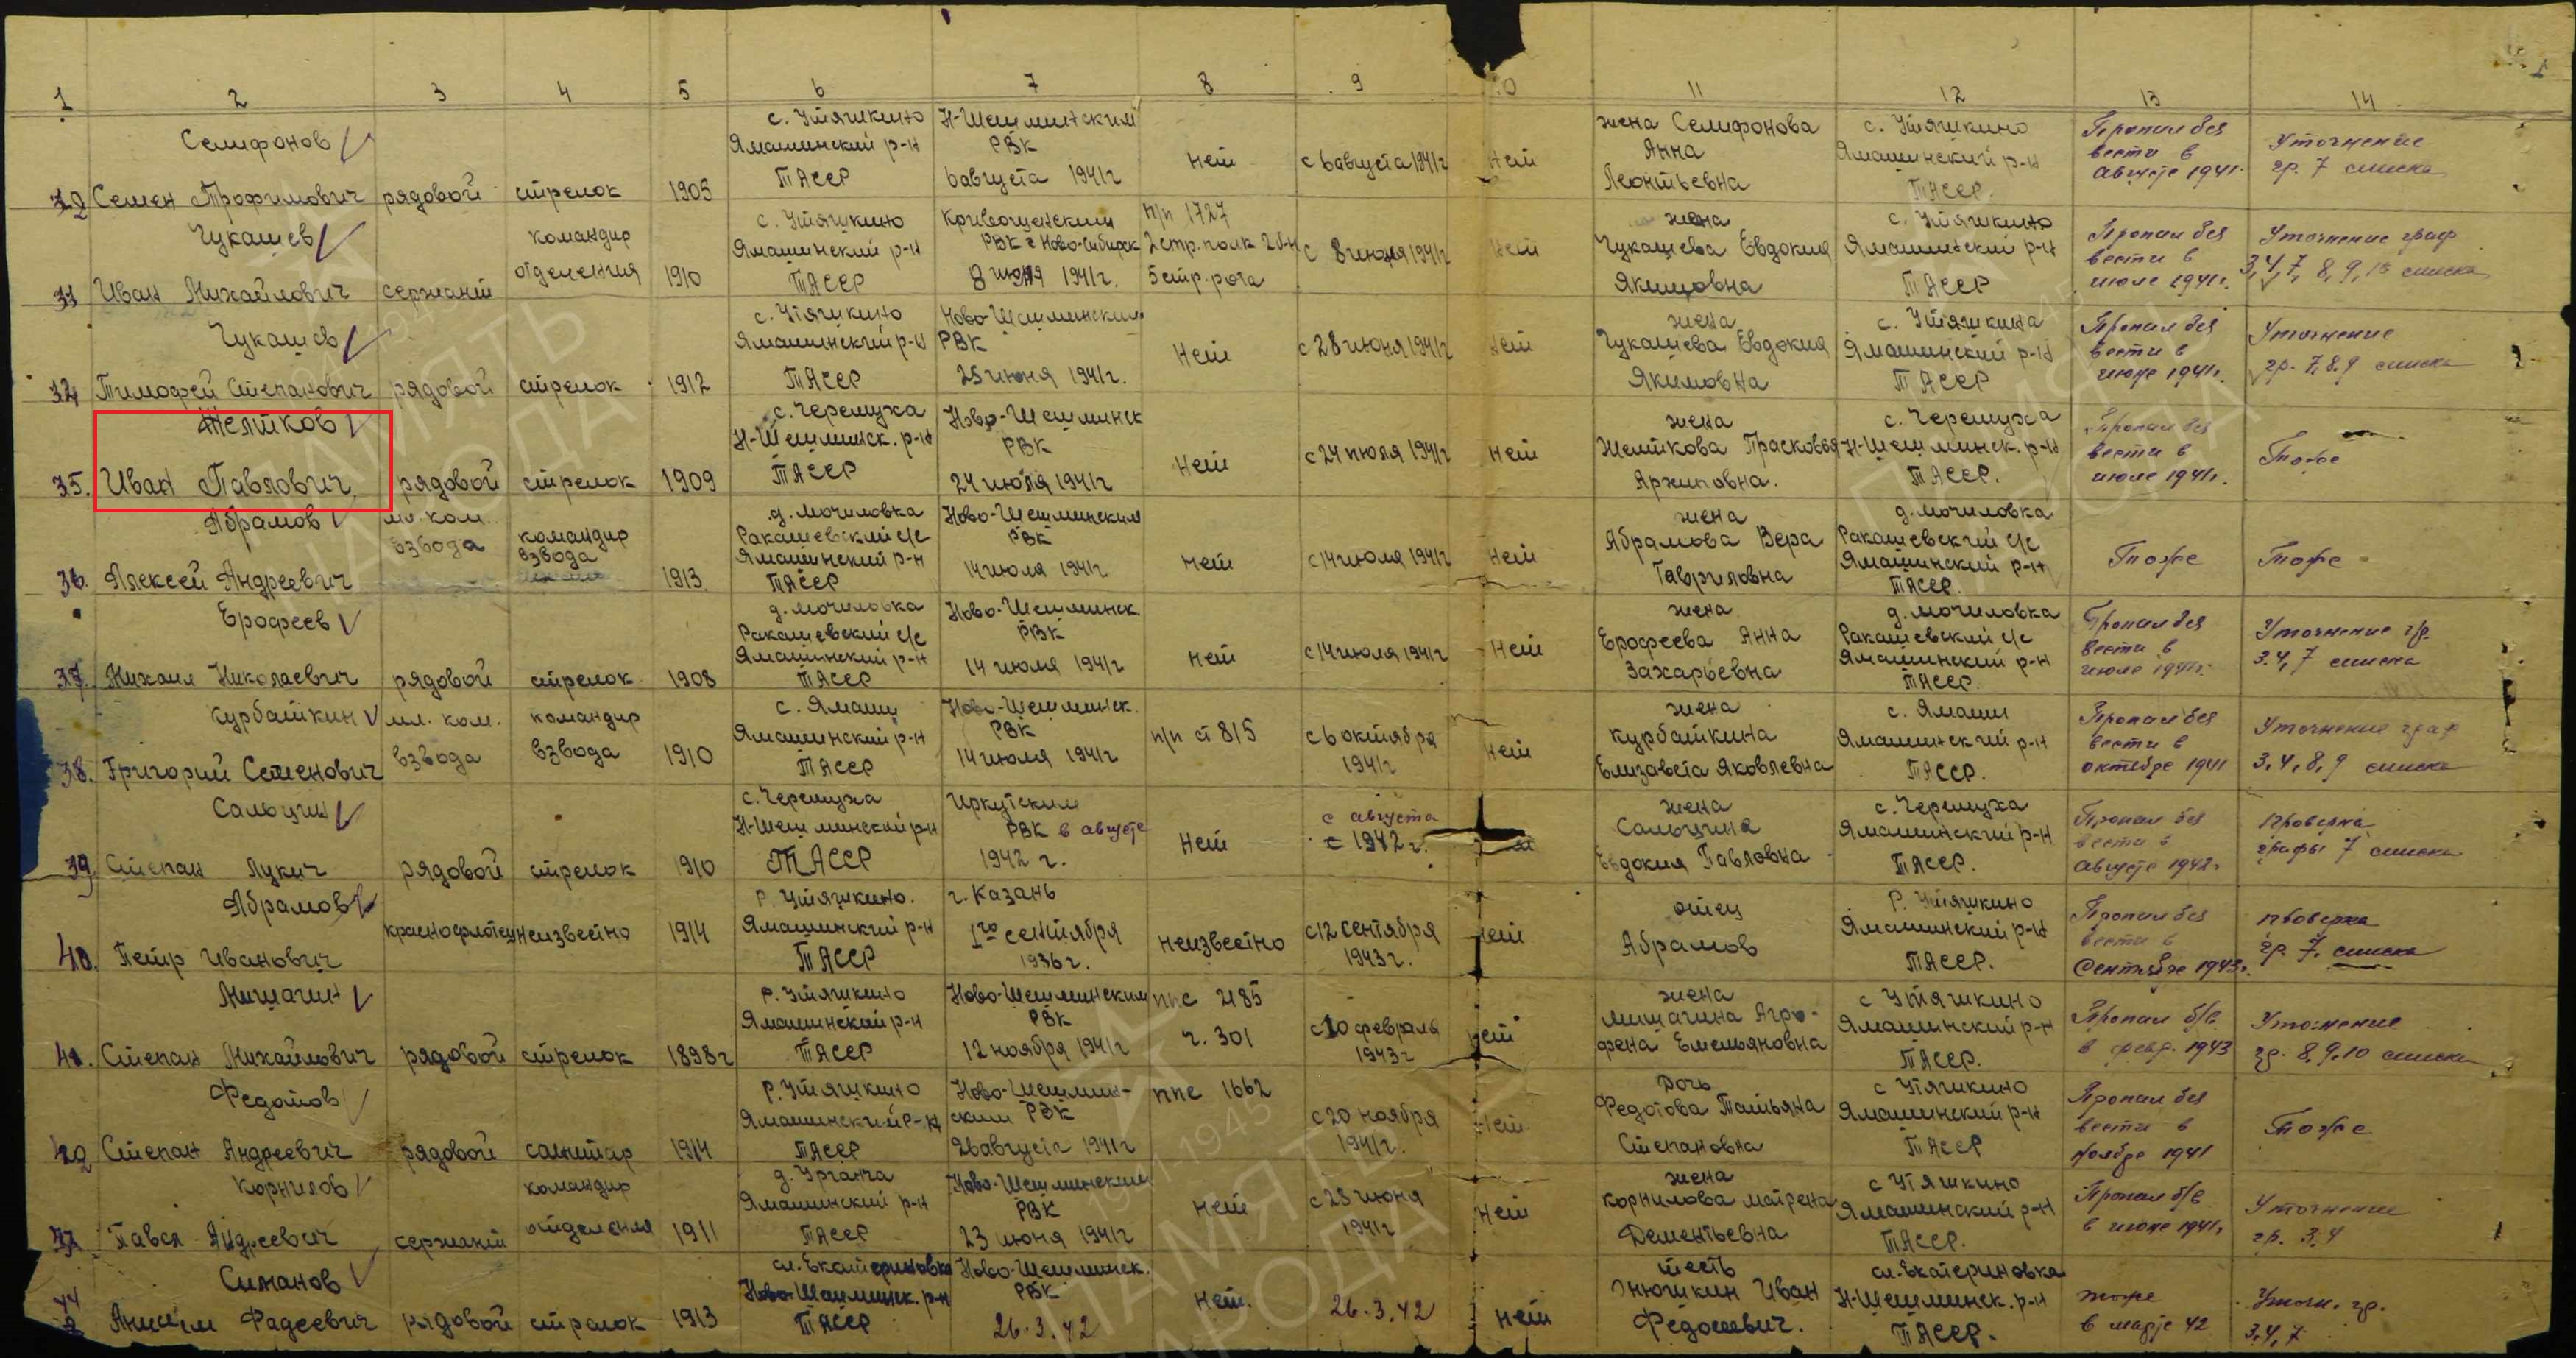 1 2 3 4 5 6 7 8 9 10 11 12 13 14
Селифонов с. Утяшкино Н-Шешминским жена Селифонова с. Утяшкино Пропал без
Ямашинский р-н РВК нет с 6 августа 1941г нет Анна Ямашинский р-н вести в Уточнение
Семен Трофимович рядовой стрелок 1905 ТАССР 6 августа 1941г Леонтьевна ТАССР. августе 1941г. гр. 7 списка
Чукашев командир с. Утяшкино п/п 1727 жена с. Утяшкино Пропал без Уточнение граф
Ямашинский р-н РВК г Ново-Сибирск 2 стр. полк Чукашева Евдокия Ямашинский р-н вести в 3,4,7, 8,9,10 списка
33 Иван Михайлович сержант отделения 1910 ТАССР 8 июня 1941г. 5 стр. рота с 8 июня 1941г нет Якимовна ТАССР июле 1941г.
Чукашев с. Утяшкино Ново-Шешминским жена с. Утяшкина Пропал без Уточнение
Ямашинский р-н РВК нет с 28 июня 1941г нет Чукашева Евдокия Ямашинский р-н вести в гр. 7,8,9 списка
34 Тимофей Степанович рядовой стрелок 1912 ТАССР 1941г. Якимовна ТАССР 1941г.
Желтков с. Черемуха Ново-Шешминск жена с. Черемуха Пропал без
Н-Шешминск. р-н РВК нет с 24 июля 1941г нет Желткова Прасковья Н-Шешминск. р-н вести в Тоже
35. Иван Павлович рядовой стрелок 1909 ТАССР 24 июля 1941г Архиповна. ТАССР. июле 1941г.
Абрамов мл. ком. взвода командир взвода д. Мочиловка Ново-Шешминским жена д. Мочиловка
Ракашевский с/с РВК Абрамова Вера Ракашевский с/с
Ямашинский р-н 14 июля 1941г нет с 14 июля 1941г нет Гавриловна Ямашинский р-н Тоже Тоже
36. Алексей Андреевич 1913 ТАССР ТАССР
Ерофеев д. Мочиловка Ново-Шешминск. жена д. Мочиловка Пропал без
Ракашевский с/с РВК Ерофеева Анна Ракашевский с/с вести в Уточнение гр.
Ямашинский р-н 14 июля 1941г нет с 14 июля 1941г нет Захарьевна Ямашинский р-н июле 1941г. 3.4,7 списка
37. Михаил Николаевич рядовой стрелок 1908 ТАССР ТАССР.
Курбаткин мл. ком. командир с. Ямаши Ново-Шешминск. жена с. Ямаши Пропал без Уточнение граф
взвода взвода 1910 Ямашинский р-н РВК п/п ст 815 с 6 октября нет Курбаткина Ямашинский р-н вести в 3.4,8,9 списка
38. Григорий Семенович ТАССР 14 июля 1941г 1941г Елизавета Яковлевна ТАССР. октябре 1941
Сальцин с. Черемуха Иркутским с августа жена с. Черемуха Пропал без Проверка
Н-Шешминский р-н РВК в августе нет с 1942 г. Сальцина Ямашинский р-н вести в графы 7 списка
39 Степан Лукич рядовой стрелок 1910 ТАССР 1942 г. Евдокия Павловна ТАССР. августе 1942г
Абрамов Р. Утяшкино. г. Казань отец Р. Утяшкино Пропал без Проверка
краснофлотец неизвестно 1914 Ямашинский р-н 1го сентября неизвестно с 12 сентября нет Абрамов Ямашинский р-н вести в гр. 7. списка
40. Петр Иванович ТАССР 1936г. 1943г. ТАССР. Сентябре 1943г.
Мишагин Р. Утяшкино Ново-Шешминским ппс 2185 жена с Утяшкино Пропал б/в Уточнение
Ямашинский р-н РВК ч. 301 с 10 февраля нет Мишагина Агрю- Ямашинский р-н в февр. 1943 гр. 8,9,10 списка
41. Степан Михайлович рядовой стрелок 1898г ТАССР 12 ноября 1941г 1943г фена Емельяновна ТАССР.
Федотов Р. Утяшкино Ново-Шешмин- ппс 1662 дочь с Утяшкино Пропал без
Ямашинский р-н ским РВК с 20 ноября нет Федотова Татьяна Ямашинский р-н вести в Тоже
42 Степан Андреевич рядовой санитар 1914 ТАССР 26 августа 1941г 1941г. Степановна ТАССР ноябре 1941
Корнилов командир д. Урганча Ново-Шешминским жена с Утяшкино Пропал б/в Уточнение
Ямашинский р-н РВК нет с 28 июня нет Корнилова Матрена Ямашинский р-н в июне 1941г. гр. 3.4
Павел Андреевич сержант отделения 1911 ТАССР 23 июня 1941г 1941г Дементьевна ТАССР.
Симанов сл. Екатериновка Ново-Шешминск. тесть сл. Екатериновка тоже
Ново-Шешминск. р-н РВК нет. 26.3.42 нет Иван Н-Шешминск. р-н в марте 42 Уточн. гр.
44 Фадеевич рядовой стрелок 1913 ТАССР 26.3.42 ТАССР. 3,4,7
ПАМЯТЬ НАРОДА
1941-1945